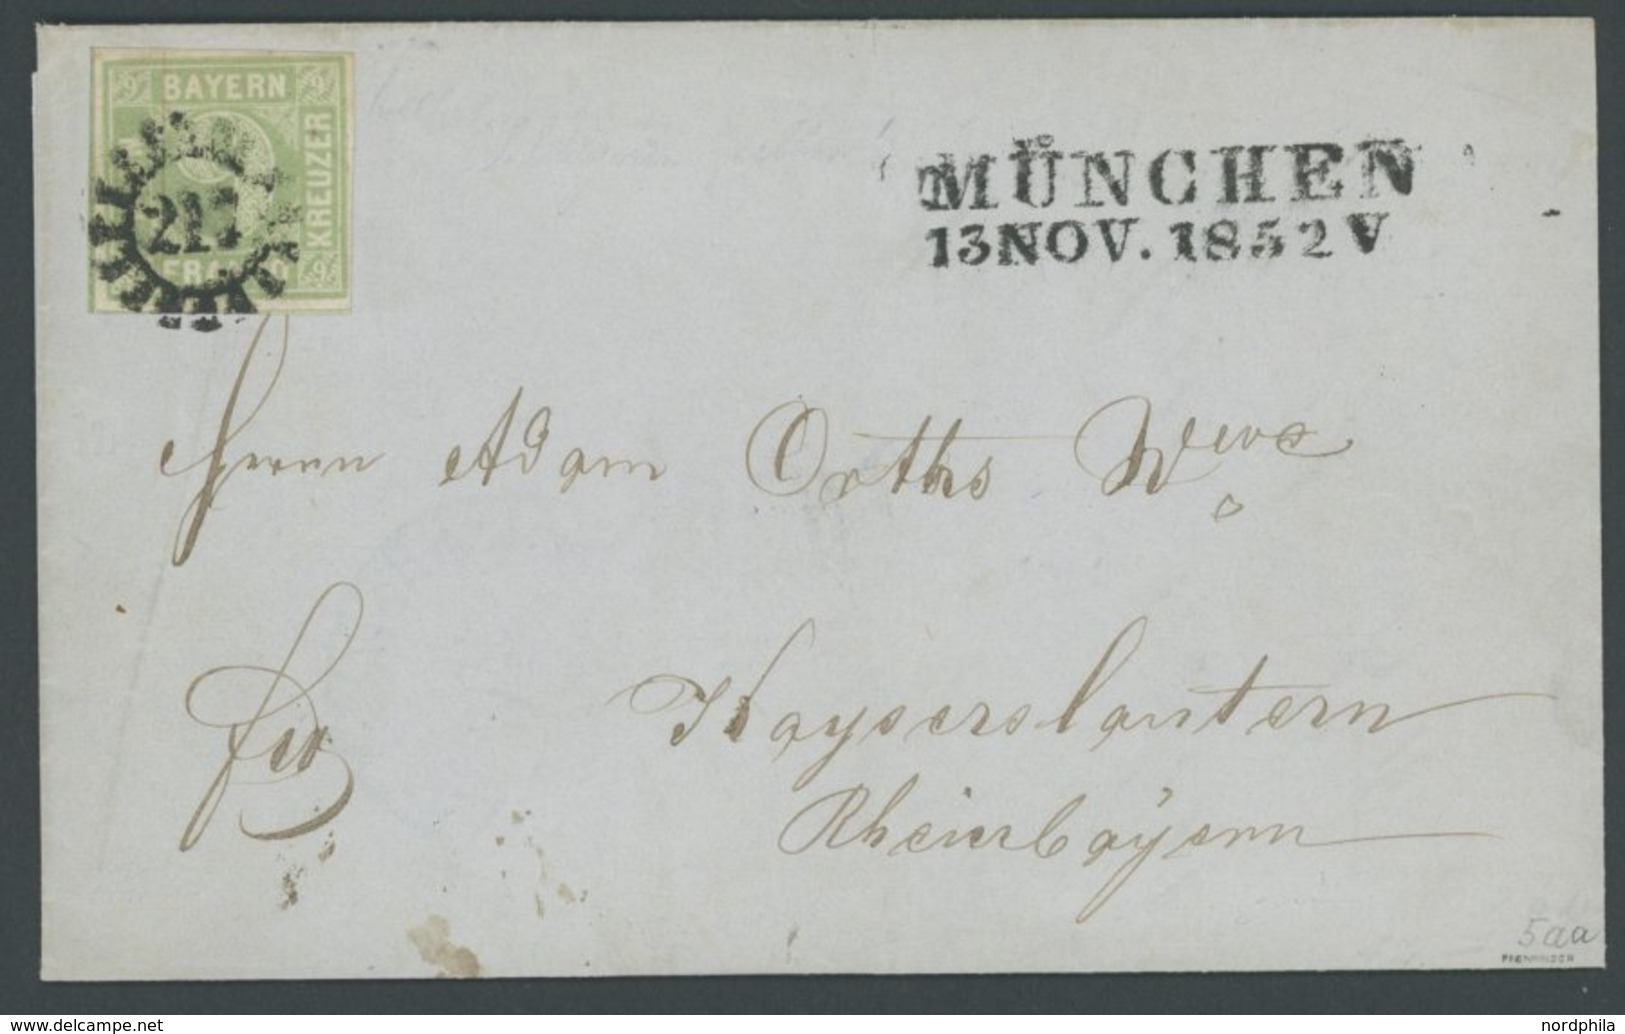 9 BAYERN 9
KREUZER
217
FRANCO 9
MÜNCHEN
13 NOV. 1852 V
Herrn Adam Orths Wwe
Kayserslautern
Rheinbayern
5aa
PFENNINGER
www.delcampe.net
nordphila